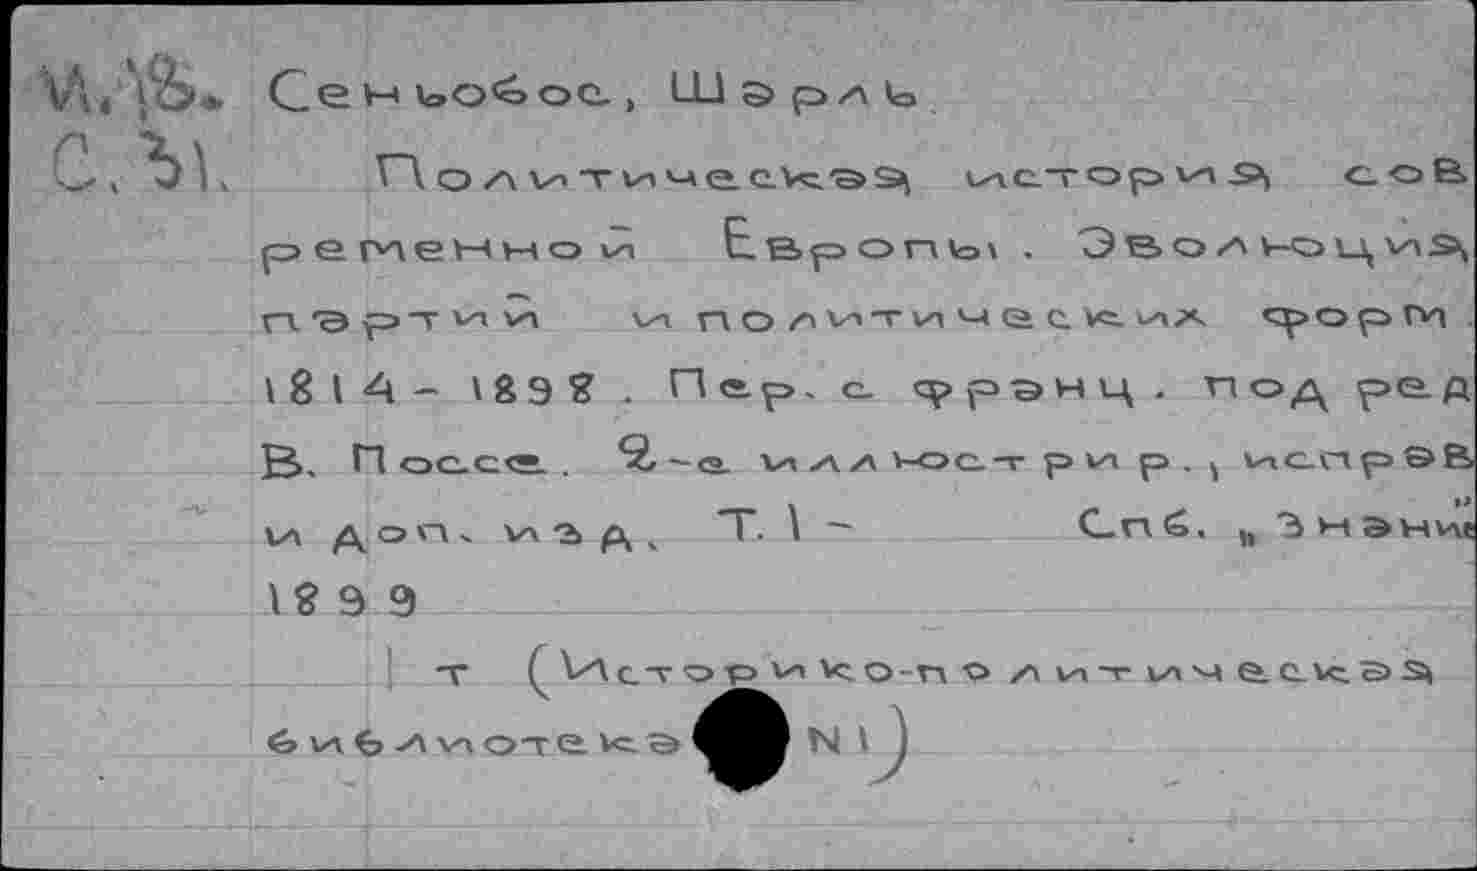 И.В. Сеньобос, Шарль
С.31.
Политическая история сов
ременной Европы. Эволюция
партий и политических форм.
1814-1898. Пер. с франц. под ред
В. Поссе. 2-е иллюстрир., исправ
и доп. изд. Т. 1 - Спб. „Знание"
1899
т (Историко-политическая
библиотека N 1)